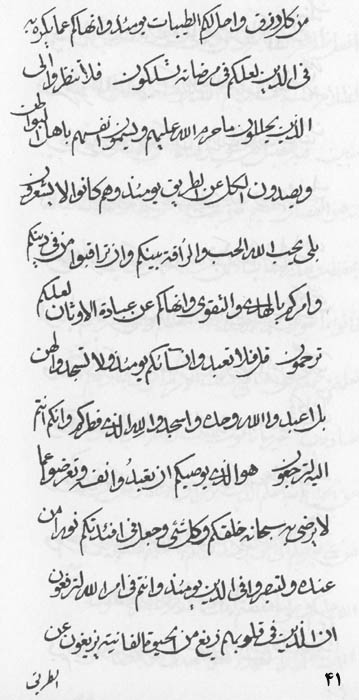 من كل ذوق واحل لكم الطيبات يومئذ وانهاكم عما يكره به
فى الدين لعلكم فى رضائه تسلكون فلا تنظر والى
الذين يحللون ما حرم الله عليهم ويسمون نفسهم باهل
ويصدون الكل عن الطريق يومئذ وهم كانوا لا يشعرون
بلى يحب الله الحب والرأفة بينكم وان تراقبوا من فى دينكم
وامركم بالهدى والتقوى وانهاكم عن عبادة الاوثان لعلكم
ترحمون قل فلا تعبدوا يومئذ ولا تسجدوا لهن
بل اعبدوا الله وحده واسجدوا لله الذى فطركم وانكم انتم
اليه ترجعون هو الذى يوصيكم ان تعبدوا وتعرضوا عما
لا يرضى به سبحانه خلقكم وكل شئ وجعل فى افئدتكم نورا من
عنده ولتعبروا فى الدين يومئذ وانتم فى امر الله ترفعون
ان الذين فى قلوبهم زيغ من الحيوة الفانية يزيغون عن
الطريق
۴۱